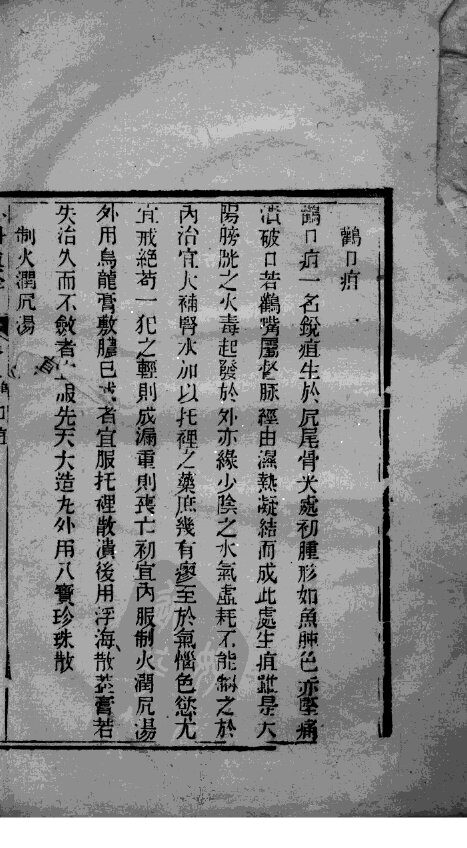 鸛口疽
鸛口疽一名銳疽生於尻尾骨尖處初腫形如魚肫色赤墜痛
潰破口若鸛嘴屬督脉經由濕熱凝結而成此處生疽雖是大
陽膀胱之火毒起發於外亦緣少陰之水氣虛耗不能制之於
內治宜大補腎水加以托裡之藥庶幾有瘳至於氣惱色慾尤
宜戒絕苟一犯之輕則成漏重則喪亡初宜內服制火潤尻湯
外用烏龍膏敷膿已成者宜服托裡散潰後用浮海散蓋膏若
失治久而不斂者宜服先天大造丸外用八寶珍珠散
制火潤尻湯